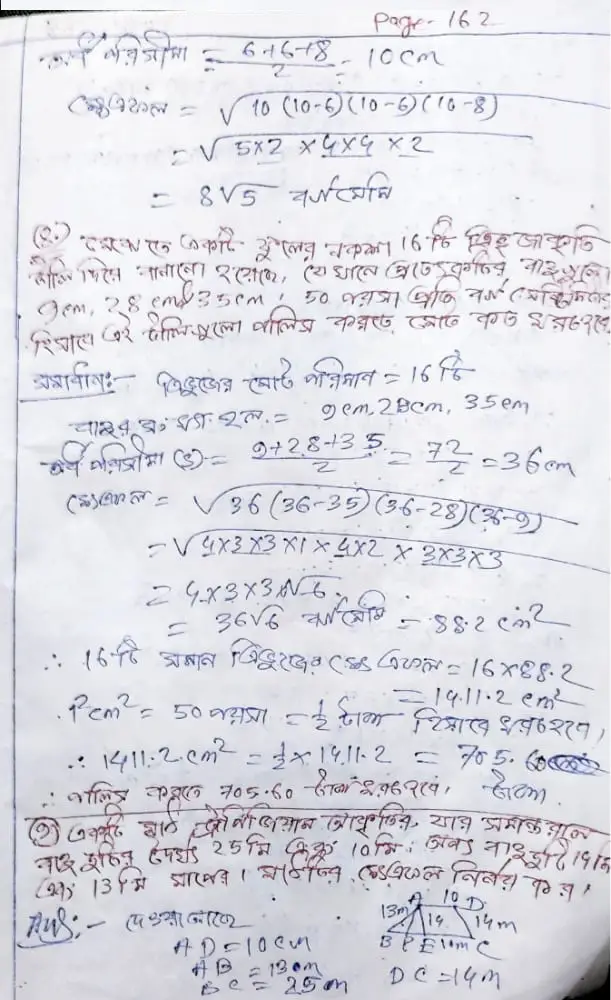 Page - 162
অর্ধ পরিসীমা = 6+6+8 / 2 = 10 cm
ক্ষেত্রফল = √10 (10-6) (10-6) (10-8)
= √5×2 × 4×4 × 2
= 8√5 বর্গসেমি
(8.) মেঝেতে একটি ফুলের নকশা 16 টি ত্রিভুজাকৃতি
টালি দিয়ে বানানো হয়েছে, যেখানে প্রত্যেকটির বাহুগুলো
9cm, 28cm 35cm। 50 পয়সা প্রতি বর্গ সেন্টিমিটার
হিসাবে এই টালিগুলো পালিস করতে মোট কত খরচ হবে
সমাধানঃ- ত্রিভুজের মোট পরিমান = 16 টি
বাহুর হল = 9cm, 28cm, 35cm
অর্ধ পরিসীমা (s) = 9+28+35 / 2 = 72 / 2 = 36 cm
ক্ষেত্রফল = √36 (36-35) (36-28) (36-9)
= √4×3×3×1×4×2 × 3×3×3
= 4×3×3×√6
= 36√6 বর্গসেমি = 88.2 cm²
∴ 16 টি সমান ত্রিভুজের ক্ষেত্রফল = 16×88.2
= 1411.2 cm²
1cm² = 50 পয়সা = ½ টাকা হিসাবে খরচ হবে,
∴ 1411.2 cm² = ½ × 1411.2 = 705.60
টাকা
∴ পালিস করতে 705.60 টাকা খরচ হবে।
(9) একটি মাঠ ট্রাপিজিয়াম আকৃতির, যার সমান্তরাল
বাহু দুটির দৈর্ঘ্য 25 মি এবং 10 মি। অন্য বাহু দুটি 14 মি
এবং 13 মি মাপের। মাঠটির ক্ষেত্রফল নির্ণয় কর।
Ans:- দেওয়া আছে
AD = 10 cm
AB = 13 cm
BC = 25 m
DC = 14 m
A 10 D
13m 14 14m
B P E 10m C